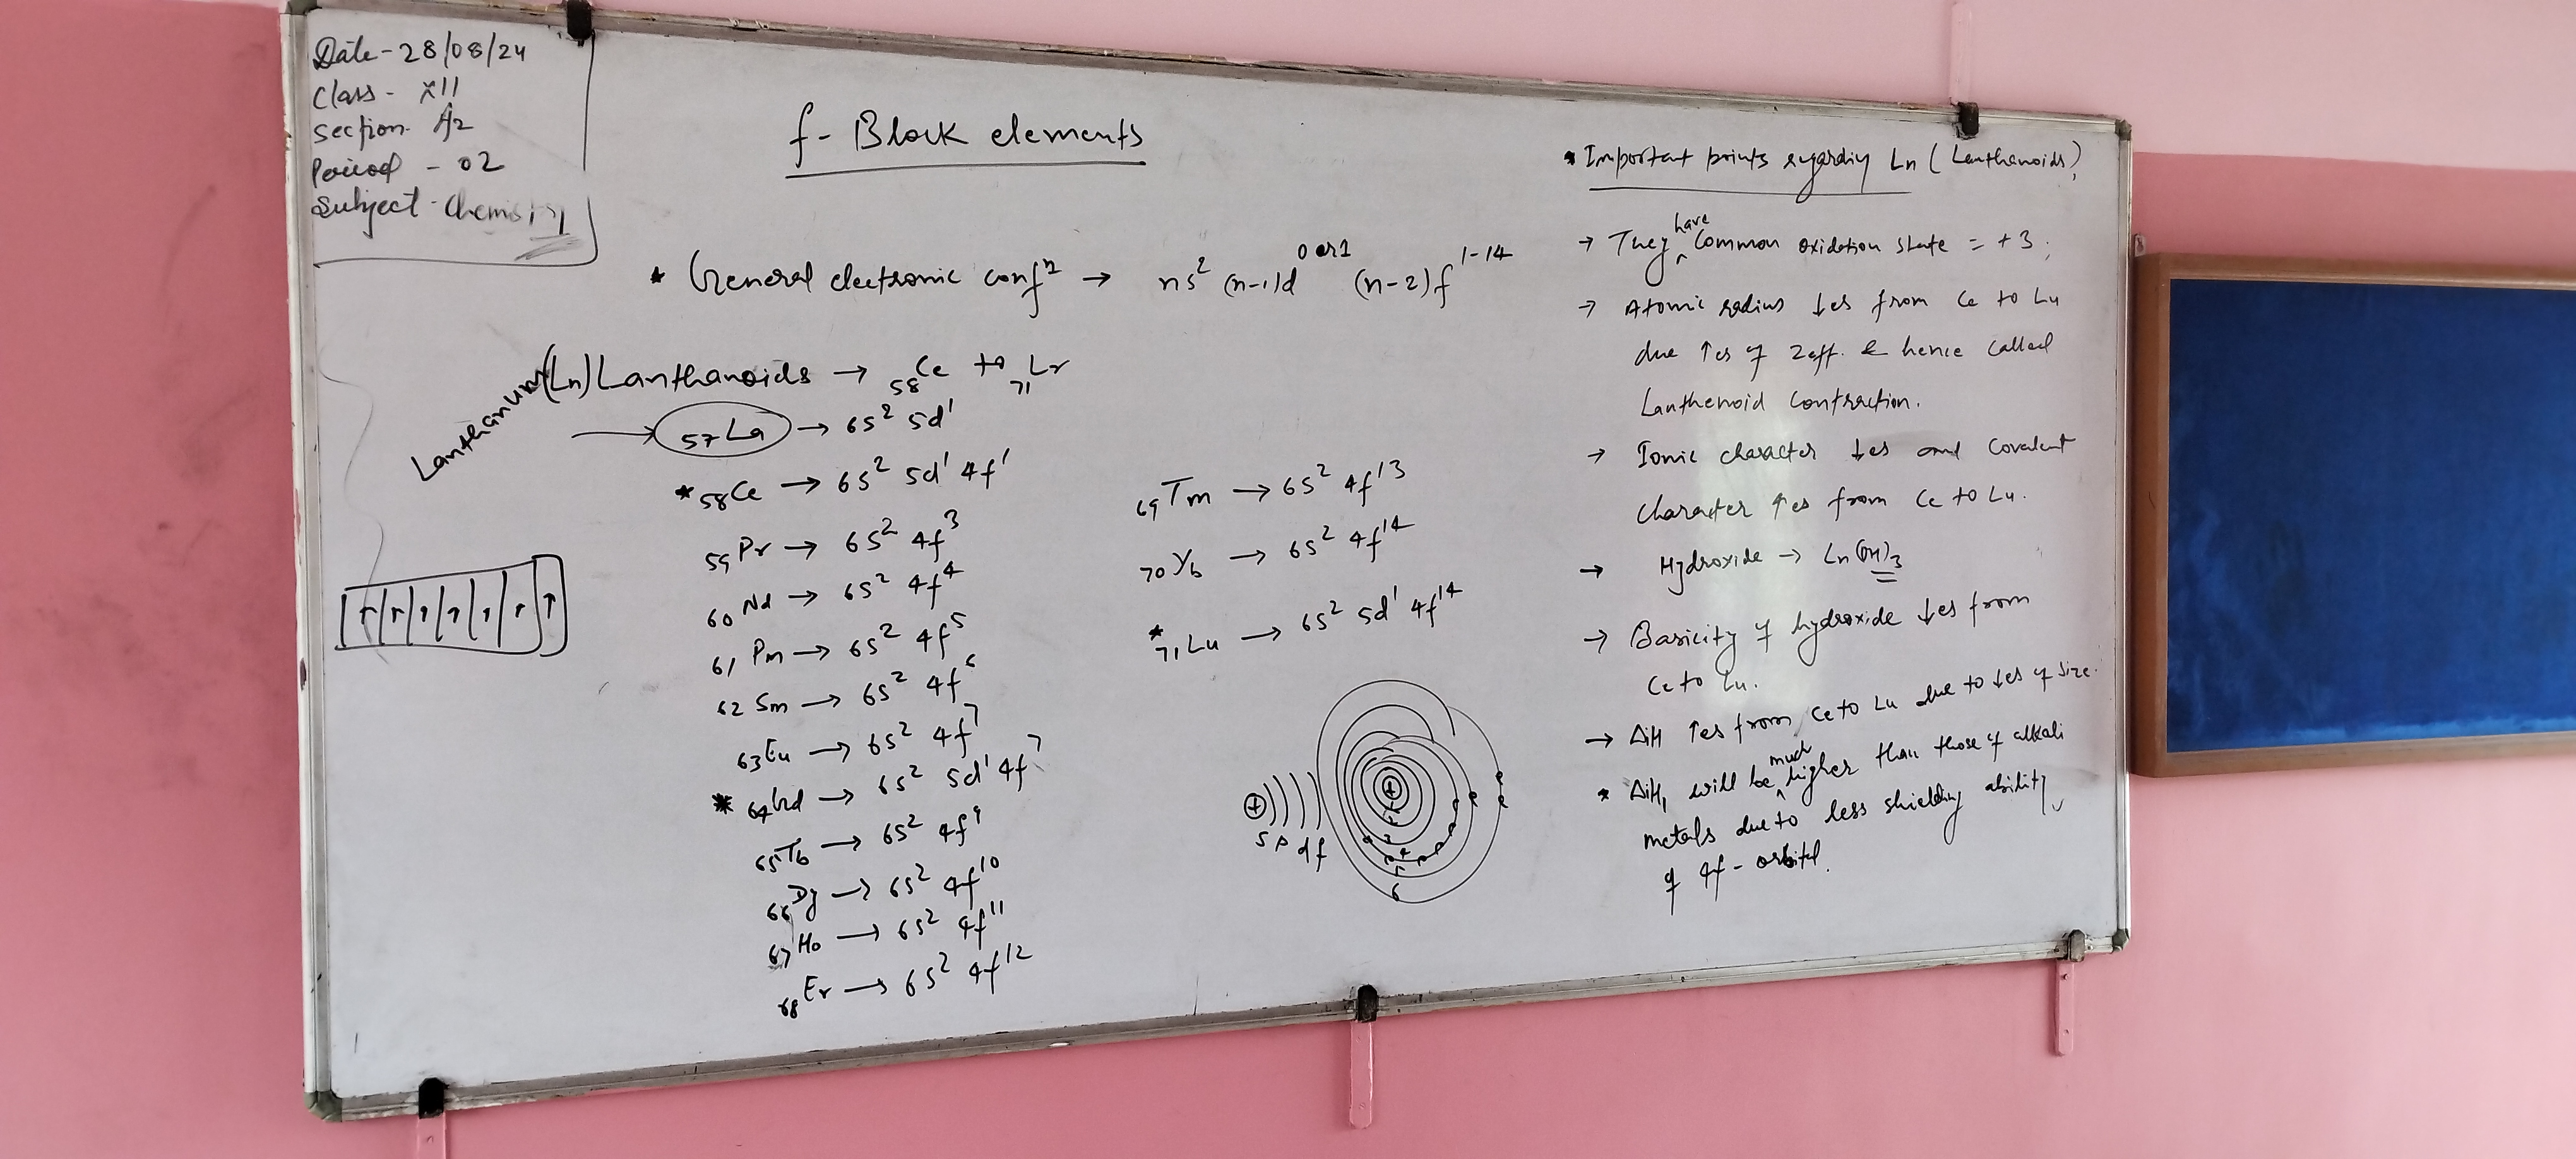 Date - 28/08/24
Class - XII
Section - A2
Period - 02
Subject - Chemistry
f - Block elements
* General electronic confⁿ → ns² (n-1)d⁰ ᵒʳ ¹ (n-2)f¹⁻¹⁴
Lanthanum
(Ln) Lanthanoids → ₅₈Ce to ₇₁Lr
→ ₅₇La → 6s² 5d¹
* ₅₈Ce → 6s² 5d¹ 4f¹
₅₉Pr → 6s² 4f³
₆₀Nd → 6s² 4f⁴
₆₁Pm → 6s² 4f⁵
₆₂Sm → 6s² 4f⁶
₆₃Eu → 6s² 4f⁷
* ₆₄Gd → 6s² 5d¹ 4f⁷
₆₅Tb → 6s² 4f⁹
₆₆Dy → 6s² 4f¹⁰
₆₇Ho → 6s² 4f¹¹
₆₈Er → 6s² 4f¹²
₆₉Tm → 6s² 4f¹³
₇₀Yb → 6s² 4f¹⁴
* ₇₁Lu → 6s² 5d¹ 4f¹⁴
s p d f
* Important points regarding Ln (Lanthanoids)
→ They have Common oxidation state = +3.
→ Atomic radius ↓es from Ce to Lu
due ↑es of Zeff. & hence called
Lanthenoid contraction.
→ Ionic character ↓es and covalent
character ↑es from Ce to Lu.
→ Hydroxide → Ln(OH)₃
→ Basicity of hydroxide ↓es from
Ce to Lu.
→ ΔiH ↑es from Ce to Lu due to ↓es of size.
* ΔiH₁ will be much higher than those of alkali
metals due to less shielding ability
of 4f - orbital.